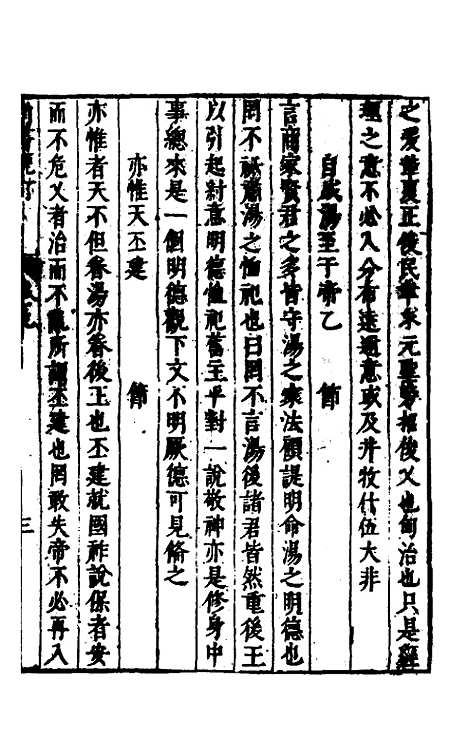 之爰革夏正俊民章求元聖勞相俊乂也甸治也只是經
理之意不必入分布遠邇意或及井牧什伍大非
自成湯至于帝乙 節
言商家賢君之多皆守湯之家法顧諟明命湯之明德也
罔不祗肅湯之恤祀也曰罔不言湯後諸君皆然重後王
以引起紂意明德恤祀舊主平對一說敬神亦是修身中
事總來是一個明德觀下文不明厥德可見脩之
亦惟天丕建 節
亦惟者天不但眷湯亦眷後王也丕建就國祚說保者安
而不危乂者治而不亂所謂丕建也罔敢失帝不必再入
三